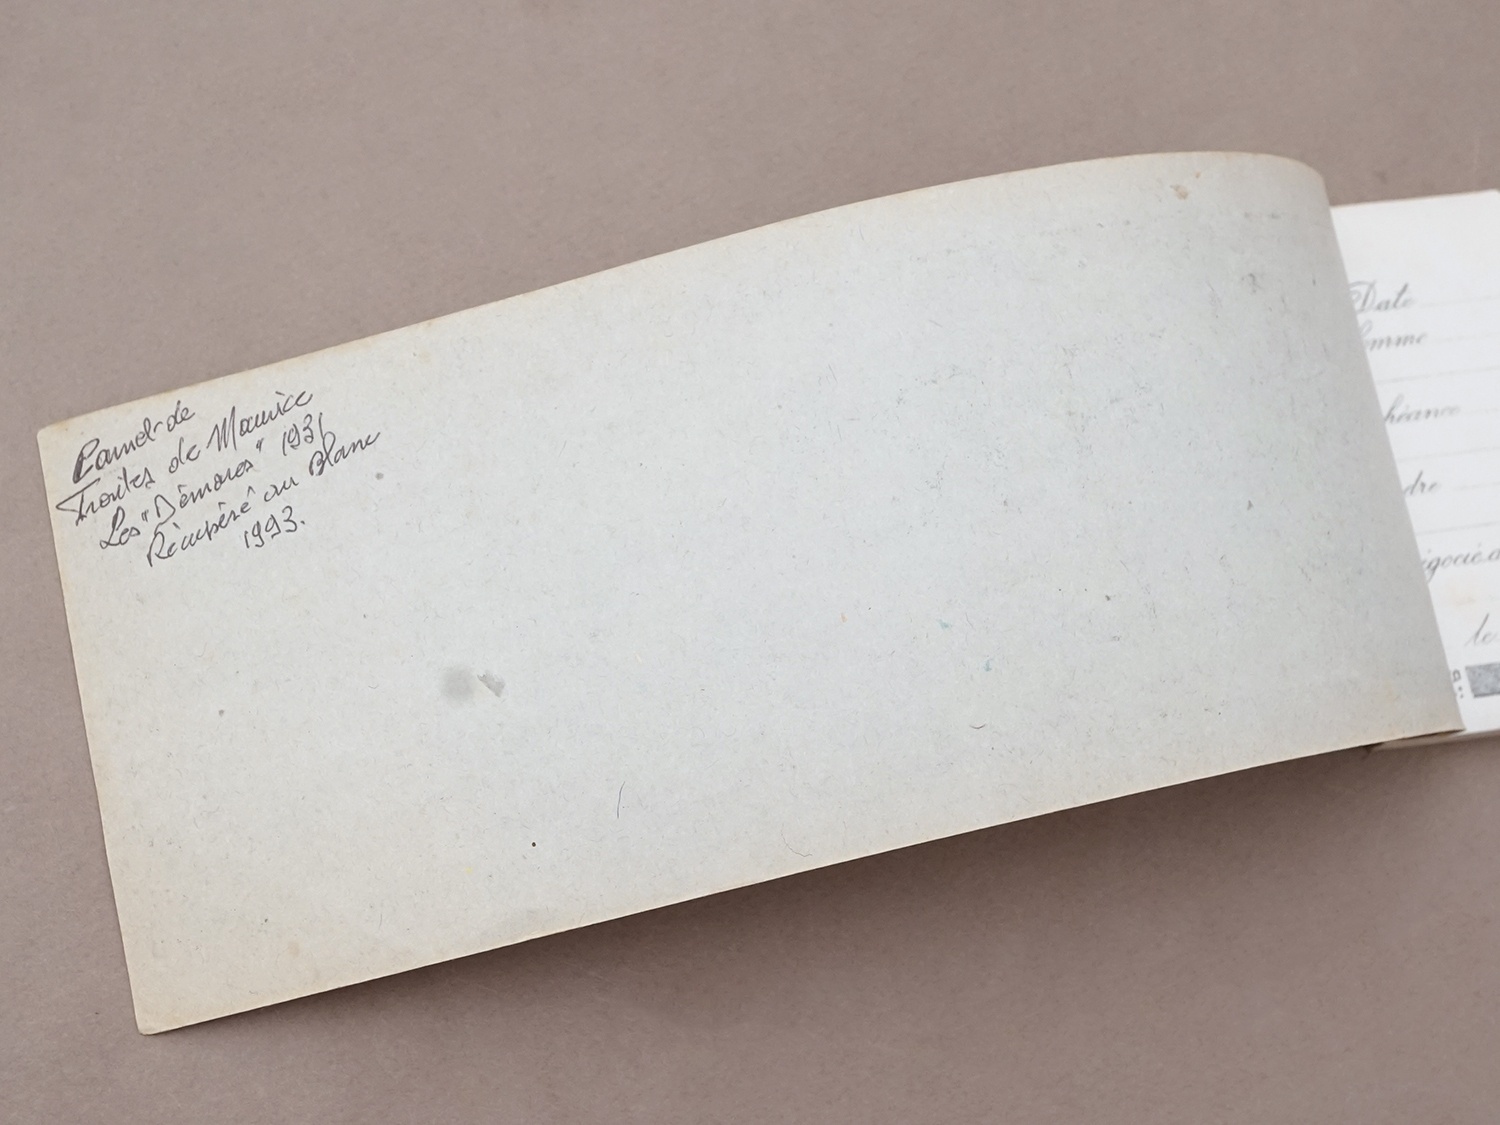 Carnet de
Traites de Maurice
Les "Démones" 1931
Récupéré au Blanc
1993.
Date
omme
héance
dre
égocié.a
le